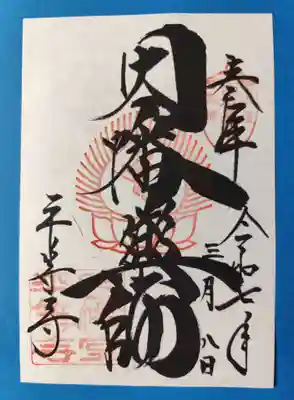 奉拝
令和七年
三月八日
因幡薬師
平等寺